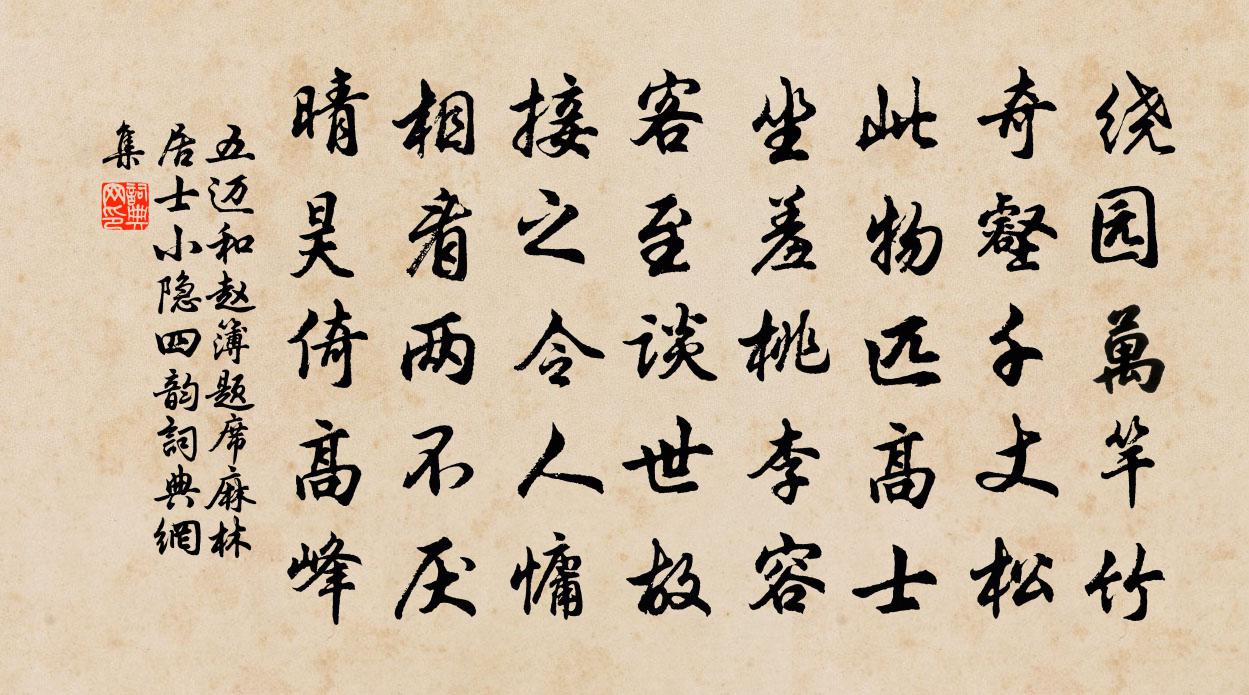 绕园萬竿竹
奇壑千丈松
此物匹高士
坐羞桃李容
客至谈世故
接之令人慵
相看两不厌
晴昊倚高峰
五迈和赵簿题席麻林
居士小隐四韵詞典網
集
詞典
网印